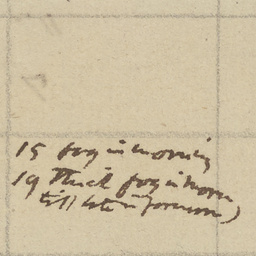 15 fog in morning
19 Thick fog in morn
till late in forenoon)